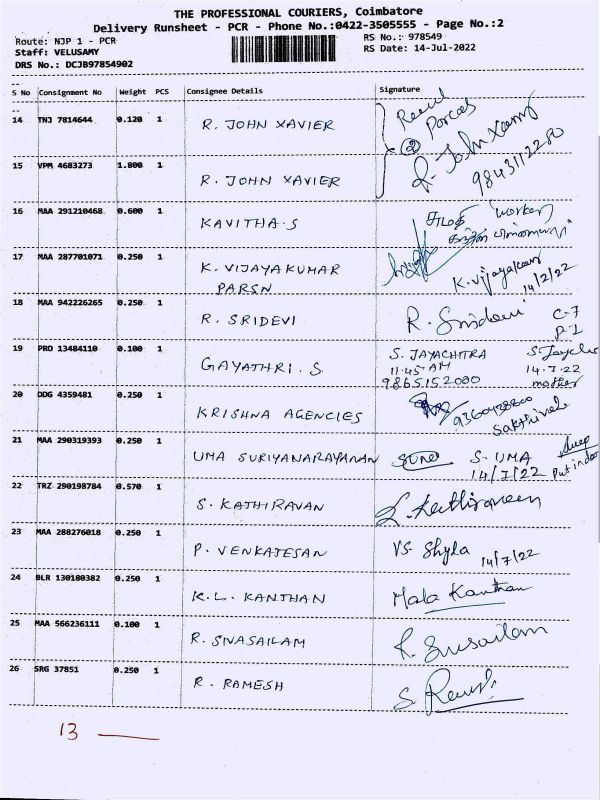 THE PROFESSIONAL COURIERS, Coimbatore
Delivery Runsheet - PCR - Phone No.:0422-3505555 - Page No.:2
Route: NJP 1 - PCR
RS No.: 978549
Staff: VELUSAMY
RS Date: 14-Jul-2022
DRS No.: DCJB97854902
S No Consignment No Weight PCS Consignee Details Signature
14 TNJ 7814644 0.120 1 R. JOHN XAVIER
15 VPM 4683273 1.800 1 R. JOHN XAVIER
9843112280
16 MAA 291210468 0.600 1 KAVITHA.S
17 MAA 287701071 0.250 1 K. VIJAYAKUMAR K. Vijayakumar
PARSN 14/2/22
18 MAA 942226265 0.250 1 R. SRIDEVI R. Sridevi
19 PRO 13484110 0.100 1 GAYATHRI.S S. JAYACHITRA
11.45 AM 14.7.22
9865152080 mother
20 ODG 4359481 0.250 1 KRISHNA AGENCIES
Sakthivel
21 MAA 290319393 0.250 1 UMA SURIYANARAYANAN S. UMA
14/7/22 Put indoor
22 TRZ 290198784 0.570 1 S. KATHIRAVAN
23 MAA 288276018 0.250 1 P. VENKATESAN VS. Shyla 14/7/22
24 BLR 130180382 0.250 1 K.L. KANTHAN Mala Kanthan
25 MAA 566236111 0.100 1 R. SIVASAILAM
26 SRG 37851 0.250 1 R. RAMESH
13